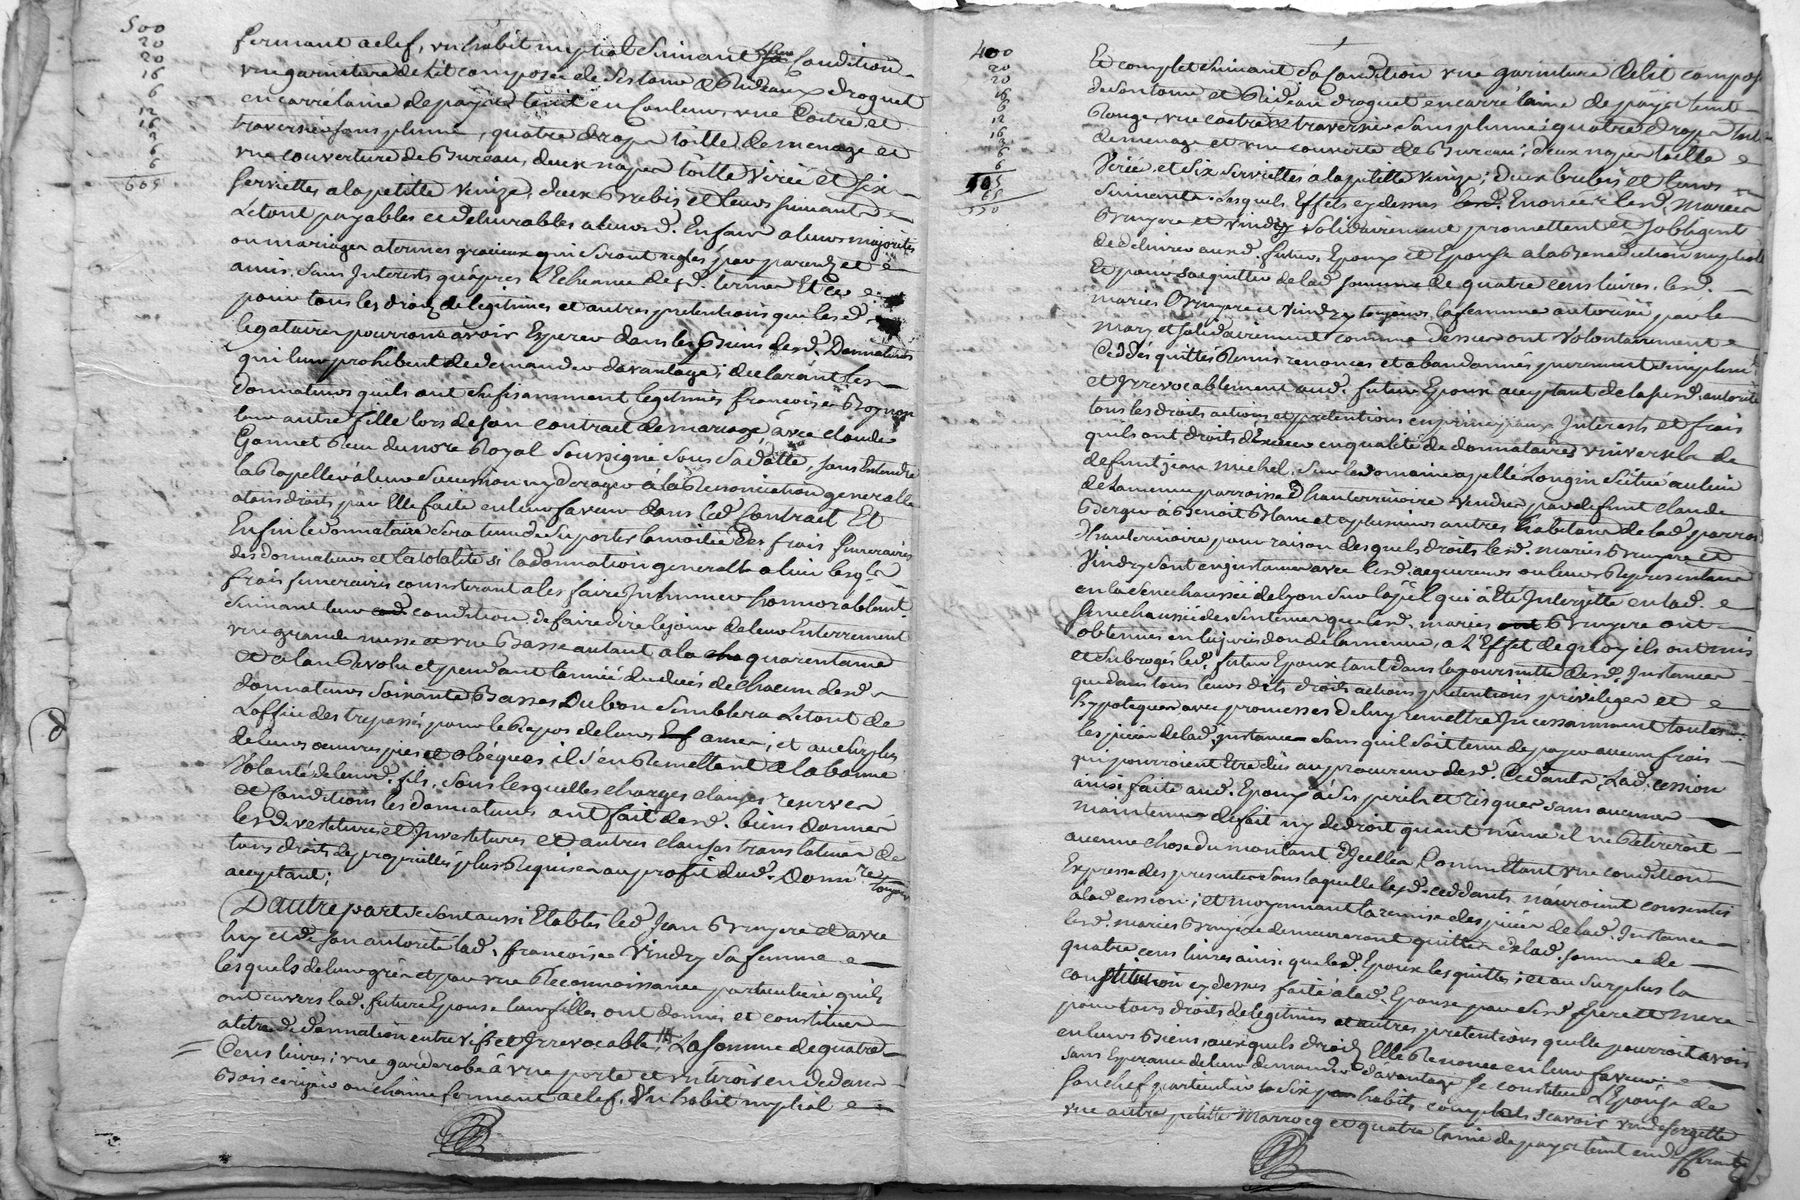 500
20
20
16
6
12
16
3
6
6
605
fermant aclef, un habit nuptial Suivant Sa Condition
une garniture de Lit composée de Sertome & Rideaux droguet
en carré laine de payis teint en Couleur, une Coitre et
traversier sans plume, quatre draps toille de menage et
une couverture de Bureau, deux napes toille Virée et Six
Serviettes a la petitte Venize, deux Brebis et leurs suivants
Le tout payables et delivrables a leursd. Enfans a leurs majorités
ou mariages a termes gracieux qui Seront reglés par parents et
amis, Sans Interests qu'apres L'Echeance desd. termes Et Ce
pour tous les droits de legitimes et autres pretentions que lesd.
legataires pourront avoir Esperer dans les Biens desd. Donnateurs
qui leur prohibent de demander davantage; declarant les
donnateurs quils ont Suffisamment legitimés francoise Brognon
leur autre fille lors de son contract de mariage avec claude
Gonnet Receu du no.re Royal Soussigné Sous Sa datte, Sans Entendre
la Rappeller a leur Succession ny deroger à la Renonciation generalle
a tous droits par Elle faite en leur faveur dans led. Contract Et
Enfin le donnataire Sera tenu de Suporter la moitié des frais funeraires
des donnateurs et la totalité si la donnation generalle a lieu lesq.ls
frais funeraires consisteront a les faire Inhumer honnorablement
Suivant leur condition, de faire dire le jour de leur Enterrement
une grande messe et une Basse autant a la quarentaine
et a lan Revolu et pendant lannée du decés de chacun desd.
donnateurs Soixante Basses Du bon Semblera Le tout de
Loffice des trepassés pour le Repos de leurs ames; et au Surplus
de leurs oeuvres pies et obseques, il s'en Remettent a la bonne
Volonté de leurd. fils. Sous lesquelles charges clauses reserves
et Conditions les donnateurs ont fait desd. biens donnés
les devestitures et Investitures et autres clauses translatives de
tous droits de proprietés plus Requises au profit dud. Donn.re
acceptant;
D'autre part Se Sont aussi Etablis led. Jean Bruyere et avec
luy et de son autorité lad. francoise Vindry Sa femme
lesquels de leur grés et par une Reconnoissance particuliere quils
ont envers lad. future Epouse leur filles ont donnés et constitués
a titre de donnation entre Vifs et Irrevocable La Somme de quatre
Cens livres; une garderobe à une porte et un tiroir en dedans
Bois cerizier ou chaine fermant aclef. Un habit nuptial
400
20
20
16
6
12
16
3
6
6
Et complet Suivant Sa Condition une garniture de lit composé
de Sontome et Rideau droguet en carré laine de payis teint
Rouge, une coitre & traversier Sans plume; quatre draps toille
de menage et une couverte de Bureau; deux napes toille
Virée, et Six Serviettes a la petitte Venize; deux brebis et leurs
Suivants. Lesquels Effets cy dessus Enoncés lesd. Mariés
Bruyere et Vindry Solidairement promettent et Sobligent
de delivrer ausd. futurs Epoux et Epouse a la Benediction nuptiale
Et pour Sacquitter de lad. Somme de quatre cens livres. lesd.
mariés Bruyere et Vindry toujours la femme autorisée par le
mary et Solidairement comme dessus ont Volontairement
Ceddés quittés Remis renoncés et abandonnés purement Simplem.t
et Irrevocablement aud. futur Epoux acceptant de lasusd. autorité
tous les droits actions et pretentions en principaux Interests et frais
quils ont droits dexercer en qualité de donnataires universels de
defunt jean michel. Sur le domaine appellé Longin Situé au lieu
de Lamenue parroisse d'hauterivoire Vendus par defunt Claude
Berger a Benoit Blanc et a plusieurs autres habitans de lad. parroi
Dhauterivoire pour raison desquels droits lesd. mariés Bruyere et
Vindry Sont en jnstance avec lesd. acquereurs ou leurs Representans
en la Senechaussée de lyon Sur lapel qui à Eté Interjetté en lad.
Senechaussée des Sentences que lesd. mariés Bruyere ont
obtenues en la jurisdon de lamenue, a L'Effet de quoy ils ont mis
et Subrogés led. futur Epoux tant dans la poursuitte desd. Instances
que dans tous leurs dits droits actions pretentions privileges et
hypoteques avec promesses de luy remettre Incessamment toutes
les pieces de lad. jnstance Sans quil Soit tenu de payer aucuns frais
qui pourroient Etre dûs au procureur desd. Cedants; Lad. cession
ainsi faite aud. Epoux à Ses perils et risques Sans aucune
maintenue de fait ny de droit quand même il ne Retireroit
aucune chose du montant dIcelles Commettant une condition
Expresse des presentes Sans laquelle lesd. ceddants n'auroient consentis
a lad. cession; et moyennant la remise des pieces de lad. Instance
lesd. mariés Bruyere demeureront quittes de lad. Somme de
quatre cens livres ainsi que led. Epoux les quitte; et au Surplus la
constitution cy dessus faite à lad. Epouse par Sesd. pere et mere
pour tous droits de legitimes et autres pretentions quelle pourroit avoir
en leurs Biens, auxquels droits Elle Renonce en leur faveur
Sans Esperance de leur demander davantage Se constitue L'Epouse de
Son chef particulier Six habits complets Scavoir un de Sergette
une autre petitte Marrocq et quatre laine de payis teint en different